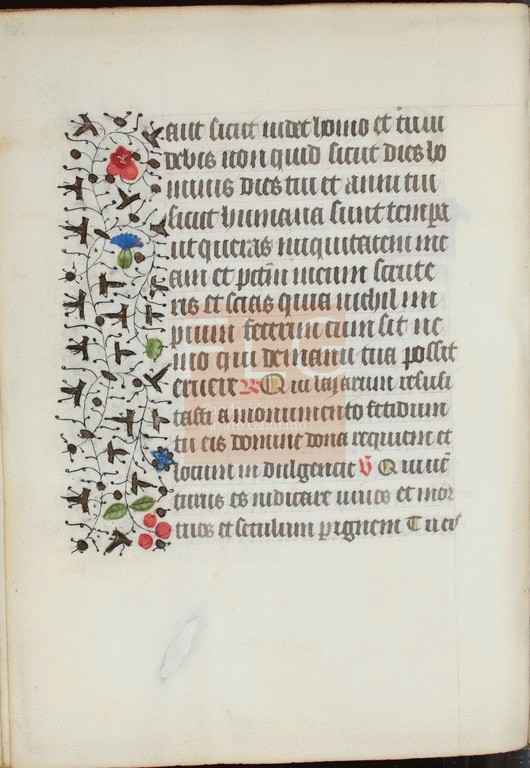 aut sicut uidet homo et tu ui
debis non quid sicut dies ho
minis dies tui et anni tui
sicut humana sunt tempa
ut queras iniquitatem me
am et pctm meum scrute
ris et scias quia nichil im
pium fecerim cum sit ne
mo qui de manu tua possit
eruere R Qui lazarum resusi
tasti a monumento fetidum
tu eis domine dona requiem et
locum in dulgencie V Qui uet
turus es iudicare uiuos et mor
tuos et seculum p ignem Tu ei